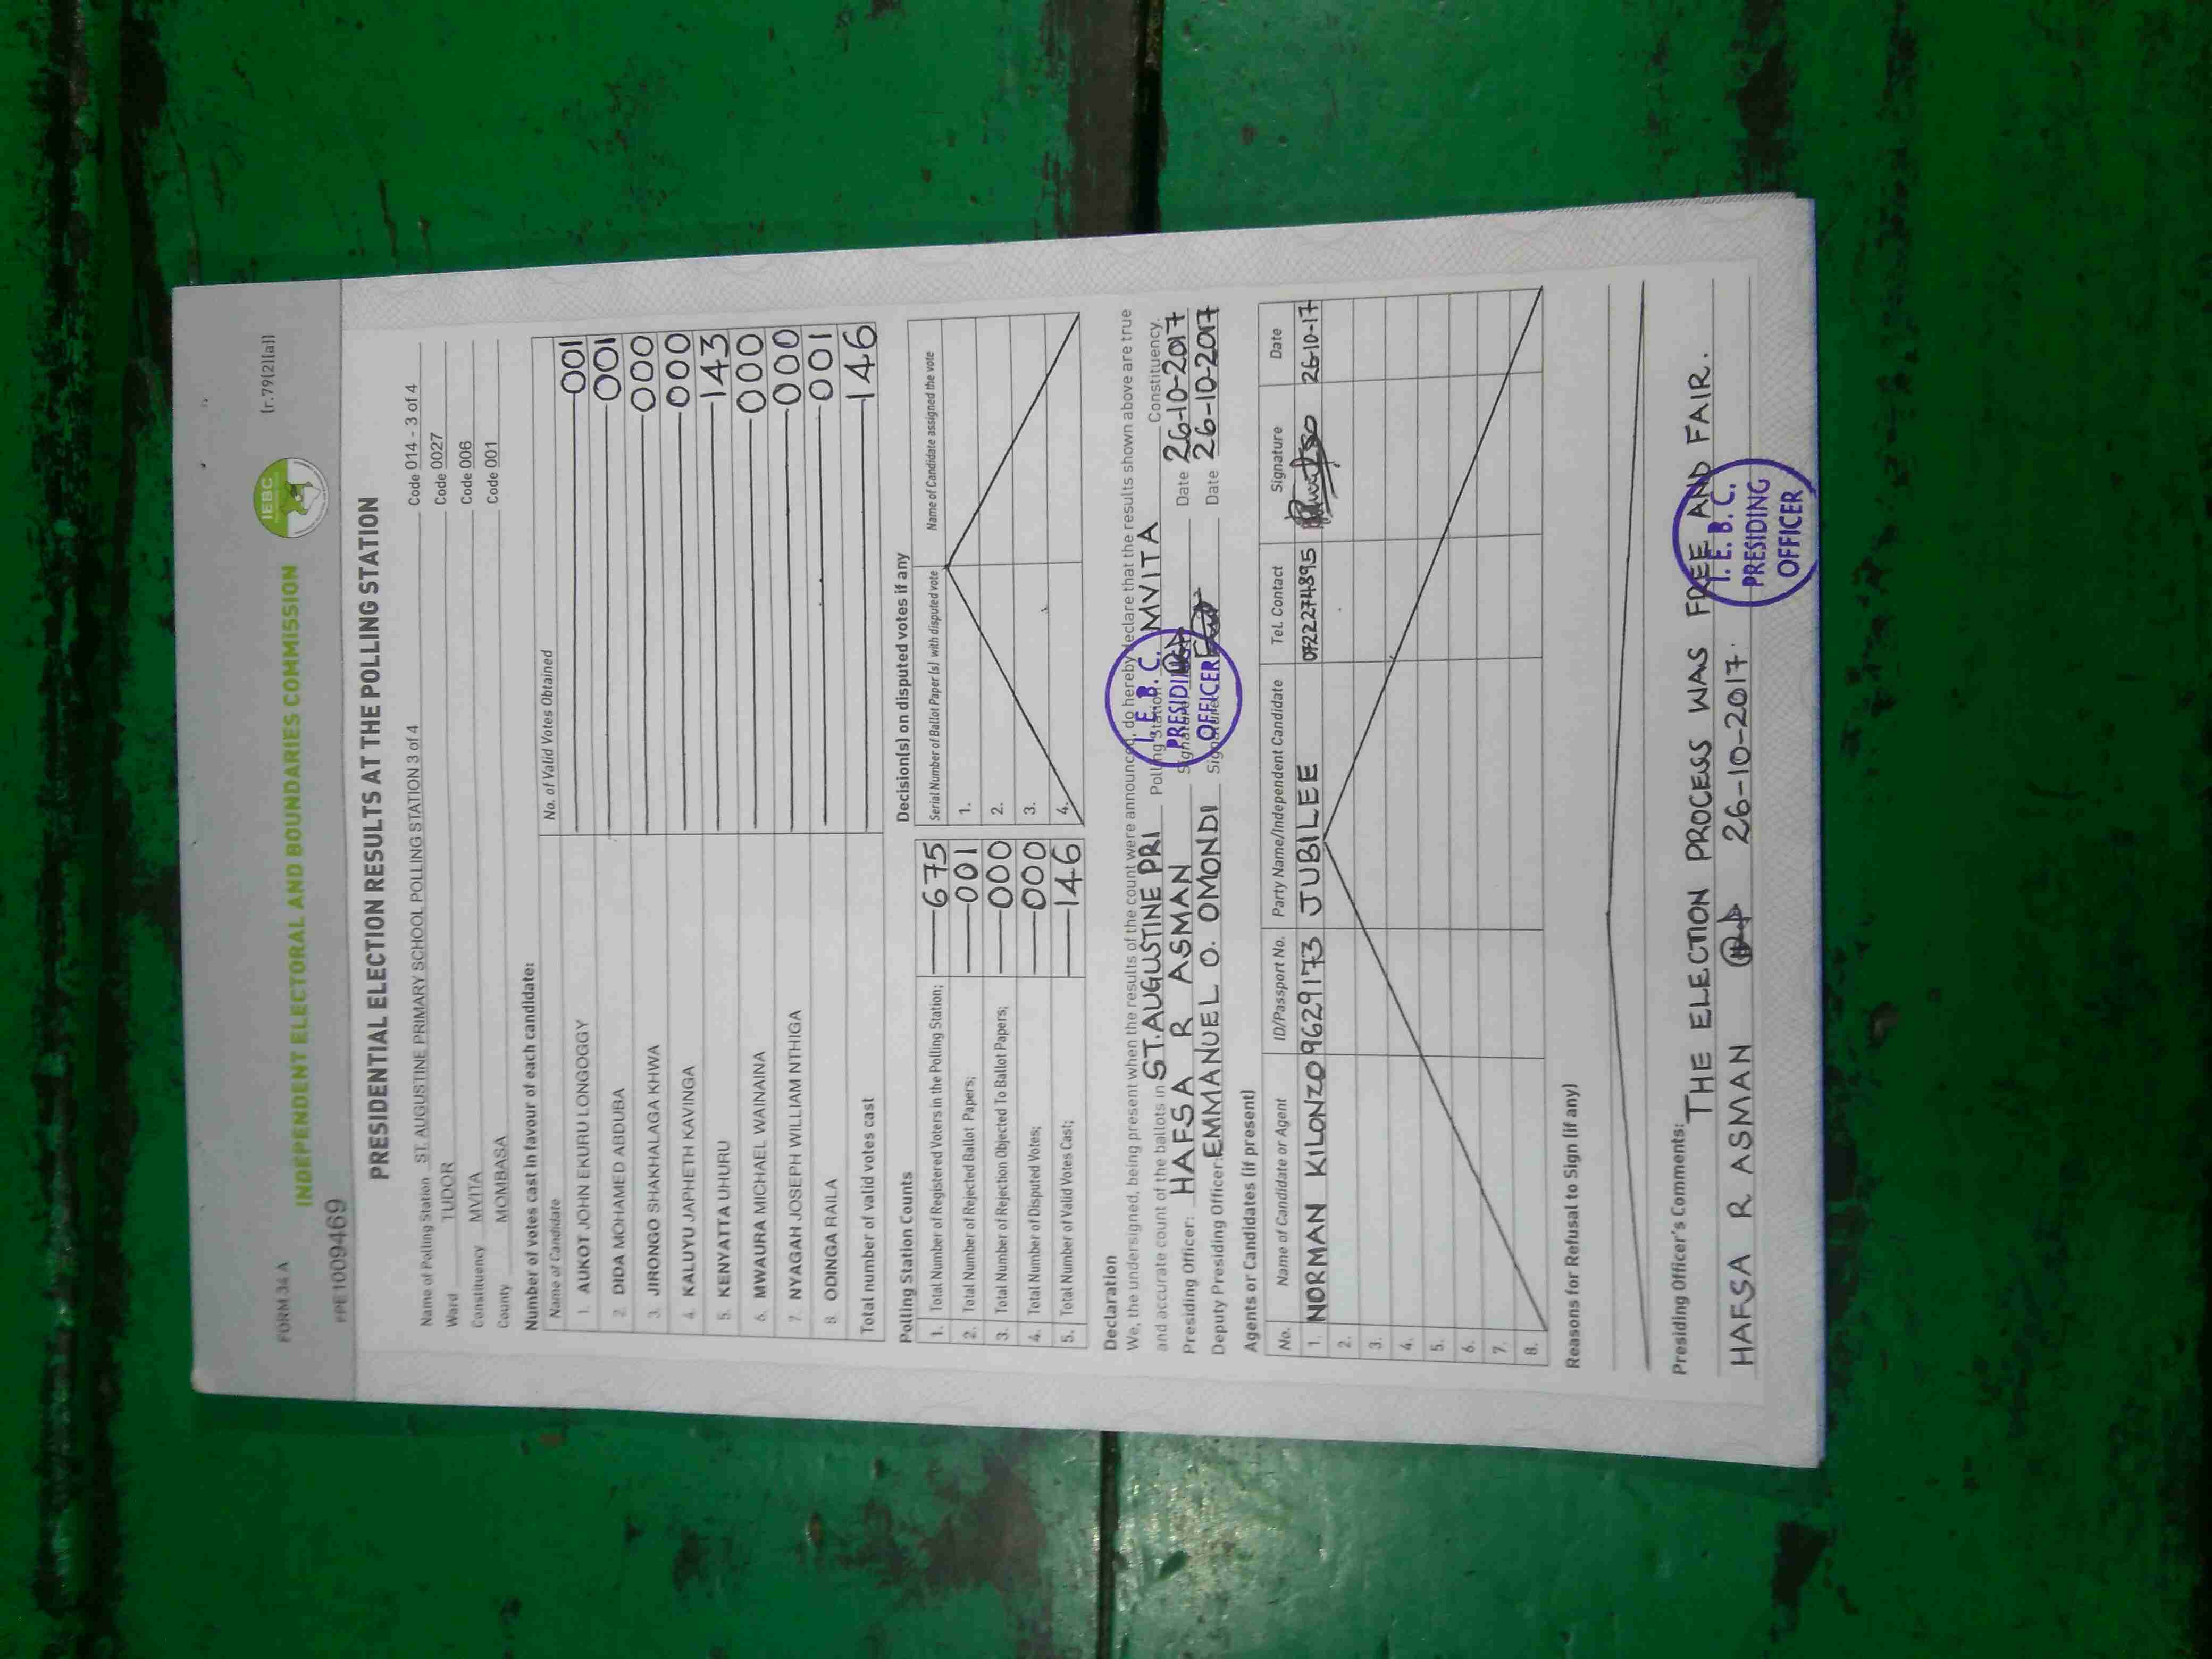 FORM 34 A
INDEPENDENT ELECTORAL AND BOUNDARIES COMMISSION
IEBC
(r.79(2)(a))
PPE 1009469
PRESIDENTIAL ELECTION RESULTS AT THE POLLING STATION
Name of Polling Station ST. AUGUSTINE PRIMARY SCHOOL POLLING STATION 3 of 4 Code 014 - 3 of 4
Ward TUDOR Code 0027
Constituency MVITA Code 006
County MOMBASA Code 001
Number of votes cast in favour of each candidate:
Name of Candidate No. of Valid Votes Obtained
1. AUKOT JOHN EKURU LONGOGGY 001
2. DIDA MOHAMED ABDUBA 001
3. JIRONGO SHAKHALAGA KHWA 000
4. KALUYU JAPHETH KAVINGA 000
5. KENYATTA UHURU 143
6. MWAURA MICHAEL WAINAINA 000
7. NYAGAH JOSEPH WILLIAM NTHIGA 000
8. ODINGA RAILA 001
Total number of valid votes cast 146
Polling Station Counts
1. Total Number of Registered Voters in the Polling Station; 675
2. Total Number of Rejected Ballot Papers; 001
3. Total Number of Rejection Objected To Ballot Papers; 000
4. Total Number of Disputed Votes; 000
5. Total Number of Valid Votes Cast; 146
Decision(s) on disputed votes if any
Serial Number of Ballot Paper (s) with disputed vote Name of Candidate assigned the vote
1.
2.
3.
4.
Declaration
We, the undersigned, being present when the results of the count were announced, do hereby declare that the results shown above are true
and accurate count of the ballots in ST. AUGUSTINE PRI Polling Station MVITA Constituency.
Presiding Officer: HAFSA R ASMAN Signature Date 26-10-2017
Deputy Presiding Officer: EMMANUEL O. OMONDI Signature Date 26-10-2017
I. E. B. C.
PRESIDING
OFFICER
Agents or Candidates (if present)
No. Name of Candidate or Agent ID/Passport No. Party Name/Independent Candidate Tel. Contact Signature Date
1. NORMAN KILONZO 09629173 JUBILEE 0722274895 26-10-17
2.
3.
4.
5.
6.
7.
8.
Reasons for Refusal to Sign (if any)
Presiding Officer's Comments:
THE ELECTION PROCESS WAS FREE AND FAIR.
HAFSA R ASMAN 26-10-2017.
I. E. B. C.
PRESIDING
OFFICER